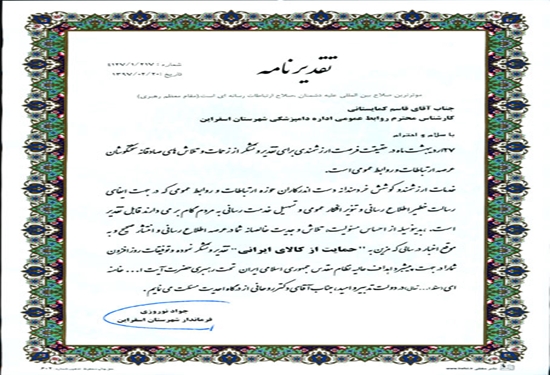 شماره : ۴۱۲۷/۱/۲۱۷
تاریخ : ۱۳۹۷/۰۲/۲۰
تقدیرنامه
موثرترین سلاح بین المللی علیه دشمنان ,سلاح ارتباطات رسانه ای است(مقام معظم رهبری)
جناب آقای قاسم کمایستانی
کارشناس محترم روابط عمومی اداره دامپزشکی شهرستان اسفراین
با سلام و احترام
۲۷اردیبهشت ماه در حقیقت فرصت ارزشمندی برای تقدیر و تشکر از زحمات و تلاش های صادقانه تلاشگران
عرصه ارتباطات و روابط عمومی است.
خدمات ارزشمند و کوشش خردمندانه دست اندرکاران حوزه ارتباطات و روابط عمومی که در جهت ایفای
رسالت خطیر اطلاع رسانی و تنویر افکار عمومی و تسهیل خدمت رسانی به مردم گام بر می دارند قابل تقدیر
است. بدینوسیله از احساس مسئولیت، تلاش و جدیت خالصانه شما در عرصه اطلاع رسانی و انتشار صحیح و به
موقع اخبار در سالی که مزین به " حمایت از کالای ایرانی " تقدیر و تشکر نموده و توفیقات روزافزون
شما را در جهت پیشبرد اهداف عالیه نظام مقدس جمهوری اسلامی ایران تحت رهبری حضرت آیت ا... خامنه
ای در دولت تدبیر و امید، جناب آقای دکتر روحانی از درگاه احدیت مسئلت می نمایم.
جواد نوروزی
فرماندار شهرستان اسفراین